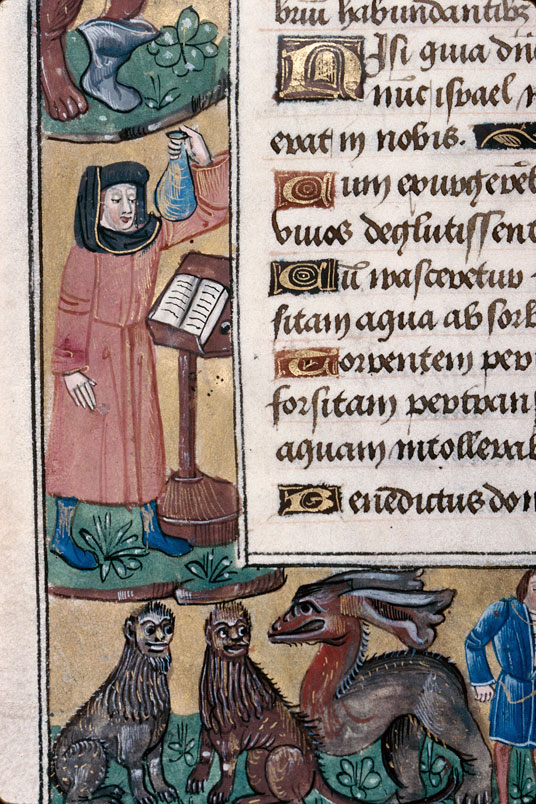 briū habundantibȝ
Nisi quia dn̄
nūc israel
erat in nobis.
Cum exurgerēt
viuos deglutissent
Cū irasceretur
sitam aqua absorb
Torrentem per
forsitam pertran
aquam intollerab
Benedictus dom